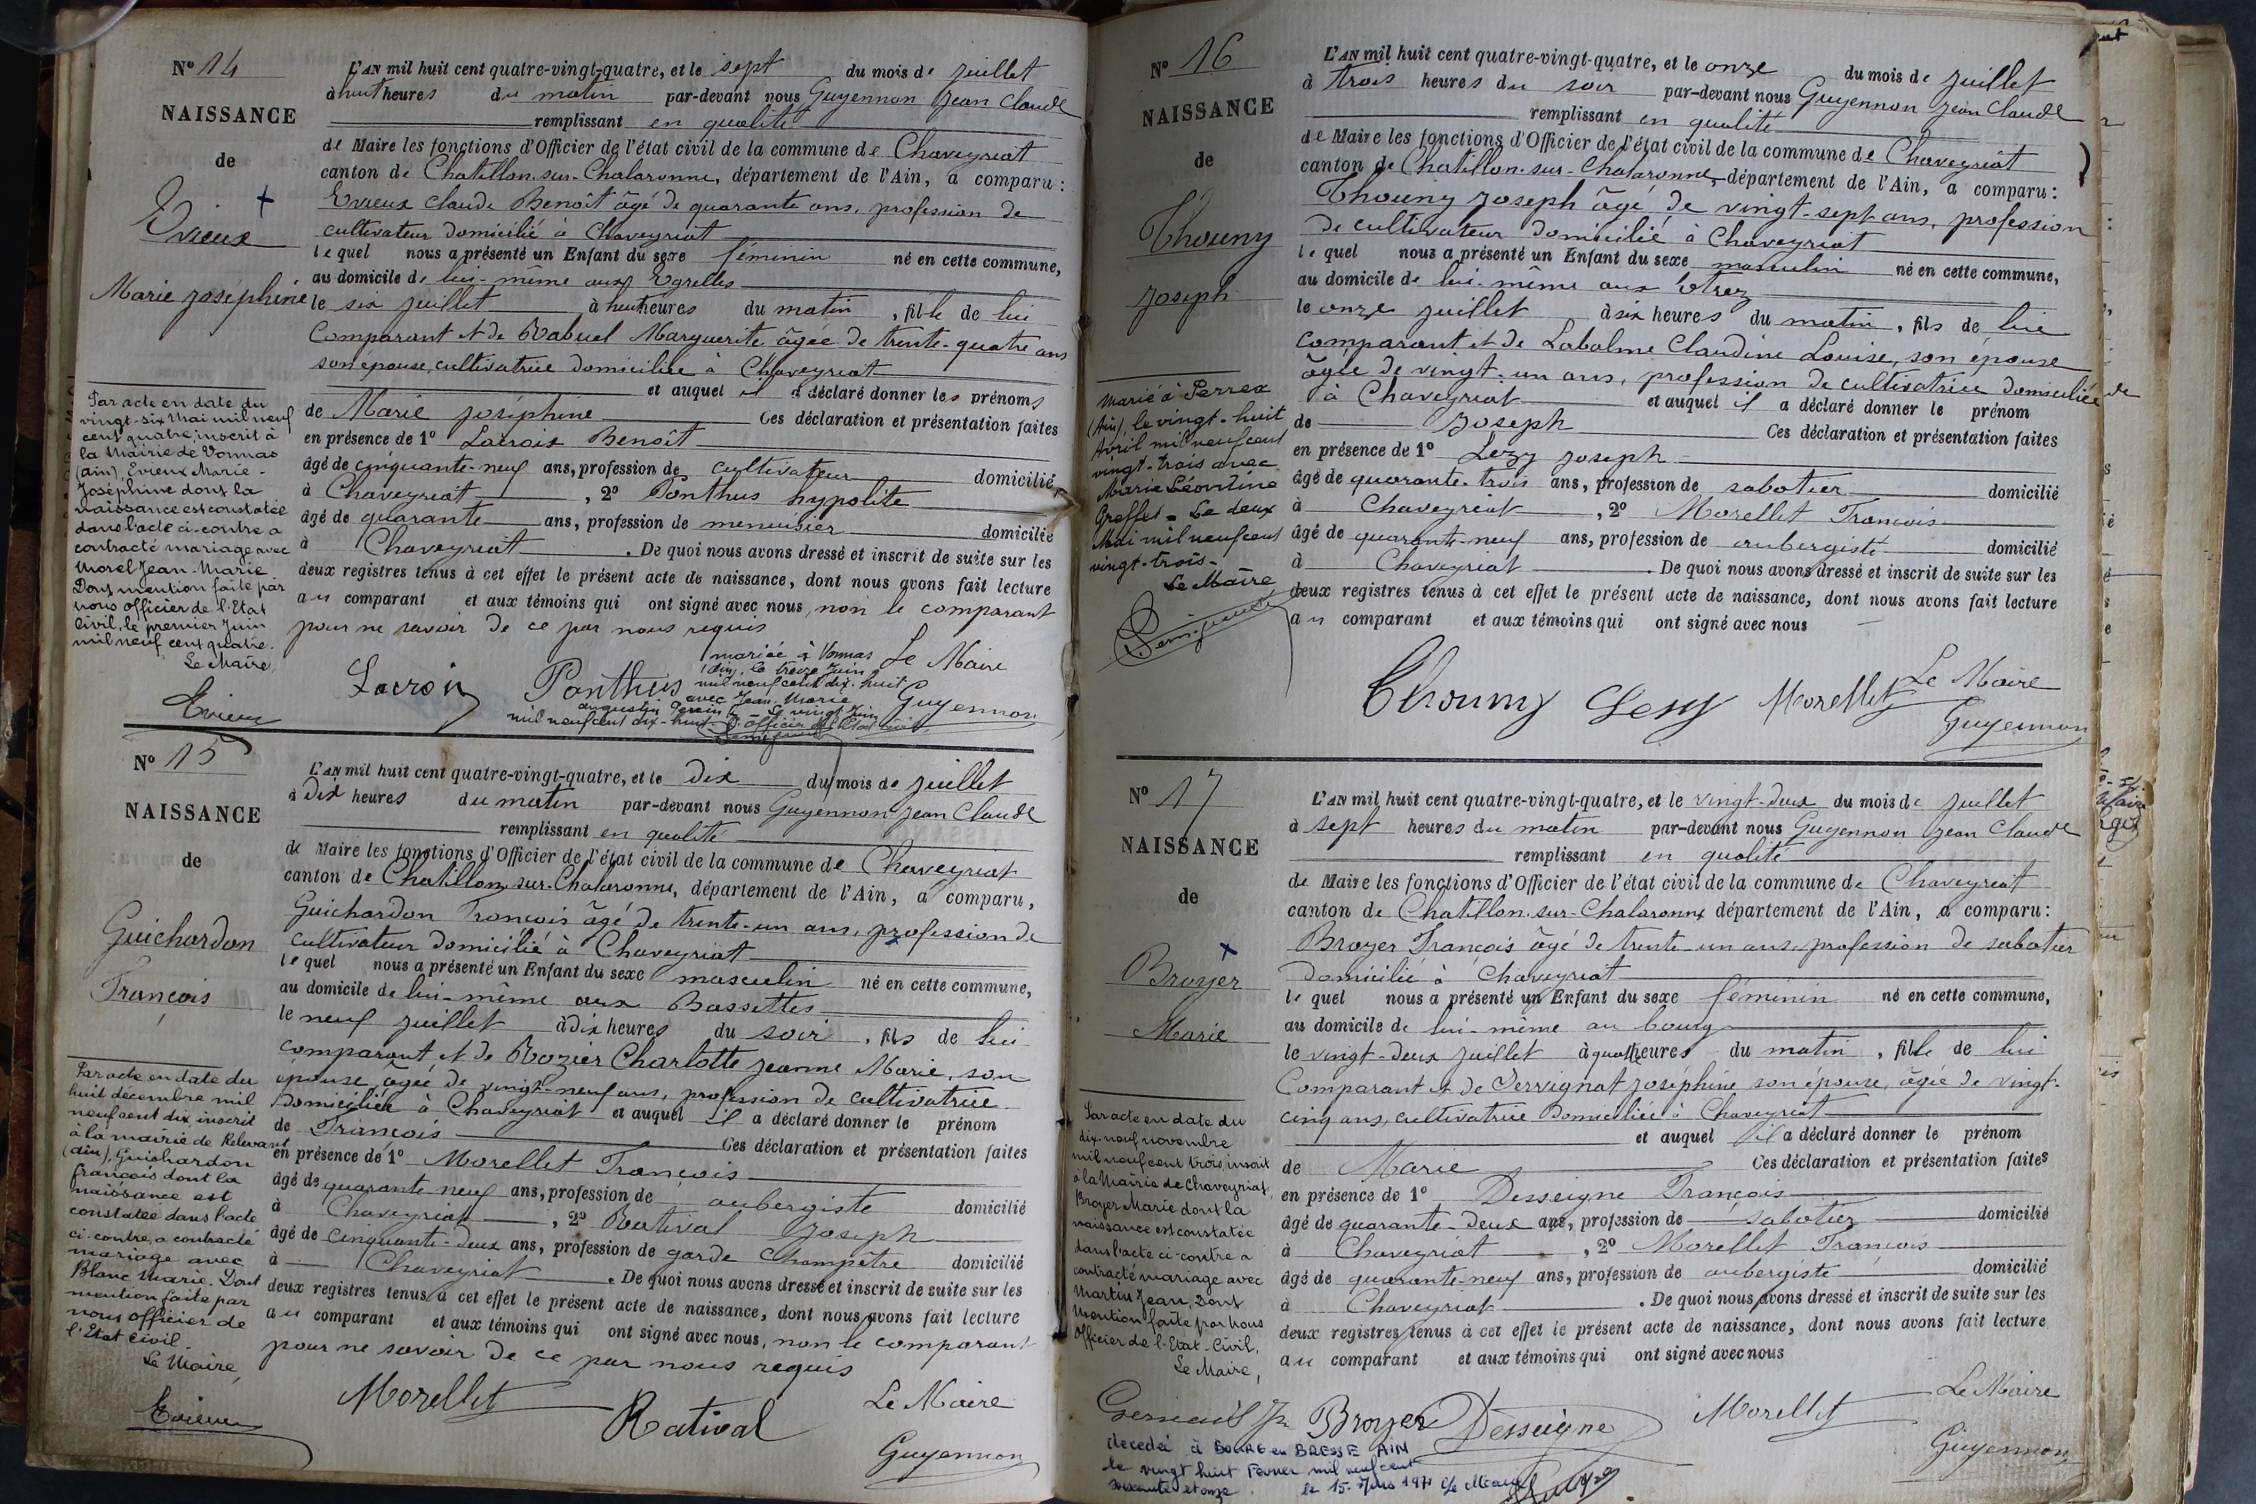 Nº 14
NAISSANCE
de
Evieux
Marie Joséphine
L'AN mil huit cent quatre-vingt-quatre, et le sept du mois de juillet
à huit heures du matin par-devant nous Guyennon Jean Claude
remplissant en qualité
de Maire les fonctions d'Officier de l'état civil de la commune de Chaveyriat
canton de Chatillon-sur-Chalaronne, département de l'Ain, a comparu :
Evieux Claude Benoît âgé de quarante ans, profession de
cultivateur domicilié à Chaveyriat
lequel nous a présenté un Enfant du sexe féminin né en cette commune,
au domicile de lui-même aux Egrelles
le six juillet à huit heures du matin, fille de lui
comparant et de Rabuel Marguerite âgée de trente-quatre ans
son épouse, cultivatrice domiciliée à Chaveyriat
et auquel il a déclaré donner les prénoms
de Marie Joséphine Ces déclaration et présentation faites
en présence de 1º Lacroix Benoît
âgé de cinquante-neuf ans, profession de cultivateur domicilié
à Chaveyriat, 2º Ponthus hypolite
âgé de quarante ans, profession de menuisier domicilié
à Chaveyriat. De quoi nous avons dressé et inscrit de suite sur les
deux registres tenus à cet effet le présent acte de naissance, dont nous avons fait lecture
au comparant et aux témoins qui ont signé avec nous, non le comparant
pour ne savoir de ce par nous requis
Lacroix Ponthus Le Maire
Guyennon
mariée à Vonnas
(Ain), le treize Juin
mil neuf cent dix-huit
avec Jean Marie
Augustin Le vingt Juin
mil neuf cent dix-huit. L'officier de l'Etat civil,
Par acte en date du
vingt-six Mai mil neuf
cent quatre, inscrit à
la Mairie de Vonnas
(Ain), Evieux Marie-
Joséphine dont la
naissance est constatée
dans l'acte ci-contre a
contracté mariage avec
Morel Jean-Marie
Dont mention faite par
nous officier de l'Etat
Civil, le premier Juin
mil neuf cent quatre.
Le Maire,
Evieux
Nº 15
NAISSANCE
de
Guichardon
François
L'AN mil huit cent quatre-vingt-quatre, et le dix du mois de juillet
à Dix heures du matin par-devant nous Guyennon Jean Claude
remplissant en qualité
de Maire les fonctions d'Officier de l'état civil de la commune de Chaveyriat
canton de Chatillon sur-Chalaronne, département de l'Ain, a comparu,
Guichardon François âgé de trente-un ans, profession de
cultivateur domicilié à Chaveyriat
lequel nous a présenté un Enfant du sexe masculin né en cette commune,
au domicile de lui-même aux Bassettes
le neuf juillet à dix heures du soir, fils de lui
comparant et de Rozier Charlotte Jeanne Marie, son
épouse, âgée de vingt-neuf ans, profession de cultivatrice
domiciliée à Chaveyriat et auquel il a déclaré donner le prénom
de François Ces déclaration et présentation faites
en présence de 1º Morellet François
âgé de quarante neuf ans, profession de aubergiste domicilié
à Chaveyriat, 2º Ratival Joseph
âgé de cinquante-deux ans, profession de garde champêtre domicilié
à Chaveyriat. De quoi nous avons dressé et inscrit de suite sur les
deux registres tenus à cet effet le présent acte de naissance, dont nous avons fait lecture
au comparant et aux témoins qui ont signé avec nous, non le comparant
pour ne savoir de ce par nous requis
Morellet Ratival Le Maire
Guyennon
Par acte en date du
huit décembre mil
neuf cent dix, inscrit
à la mairie de Relevant
(Ain), Guichardon
françois dont la
naissance est
constatée dans l'acte
ci-contre, a contracté
mariage avec
Blanc Marie. Dont
mention faite par
nous officier de
l'Etat civil.
Le Maire,
Evieux
Nº 16
NAISSANCE
de
Thouny
Joseph
L'AN mil huit cent quatre-vingt-quatre, et le onze du mois de juillet
à trois heures du soir par-devant nous Guyennon Jean Claude
remplissant en qualité
de Maire les fonctions d'Officier de l'état civil de la commune de Chaveyriat
canton de Chatillon-sur-Chalaronne, département de l'Ain, a comparu :
Thouny Joseph âgé de vingt-sept ans, profession
de cultivateur domicilié à Chaveyriat
lequel nous a présenté un Enfant du sexe masculin né en cette commune,
au domicile de lui-même aux
le onze juillet à six heures du matin, fils de lui
comparant et de Labalme Claudine Louise, son épouse
âgée de vingt-un ans, profession de cultivatrice domiciliée
à Chaveyriat et auquel il a déclaré donner le prénom
de Joseph Ces déclaration et présentation faites
en présence de 1º Lezy Joseph
âgé de quarante-trois ans, profession de sabotier domicilié
à Chaveyriat, 2º Morellet François
âgé de quarante-neuf ans, profession de aubergiste domicilié
à Chaveyriat. De quoi nous avons dressé et inscrit de suite sur les
deux registres tenus à cet effet le présent acte de naissance, dont nous avons fait lecture
au comparant et aux témoins qui ont signé avec nous
Thouny Lesy Morellet Le Maire
Guyennon
Marié à Perrex
(Ain), le vingt-huit
Avril mil neuf cent
vingt-trois avec
Marie Léontine
Greffet - Le deux
Mai mil neuf cent
vingt-trois.
Le Maire
Nº 17
NAISSANCE
de
Broyer
Marie
L'AN mil huit cent quatre-vingt-quatre, et le vingt-deux du mois de juillet
à sept heures du matin par-devant nous Guyennon Jean Claude
remplissant en qualité
de Maire les fonctions d'Officier de l'état civil de la commune de Chaveyriat
canton de Chatillon-sur-Chalaronne département de l'Ain, a comparu :
Broyer François âgé de trente-un ans, profession de sabotier
domicilié à Chaveyriat
lequel nous a présenté un Enfant du sexe féminin né en cette commune,
au domicile de lui-même au bourg
le vingt-deux juillet à quatre heures du matin, fille de lui
comparant et de Perrignat Joséphine son épouse, âgée de vingt-
cinq ans, cultivatrice domiciliée à Chaveyriat
et auquel il a déclaré donner le prénom
de Marie Ces déclaration et présentation faites
en présence de 1º Desseigne François
âgé de quarante-deux ans, profession de sabotier domicilié
à Chaveyriat, 2º Morellet François
âgé de quarante-neuf ans, profession de aubergiste domicilié
à Chaveyriat. De quoi nous avons dressé et inscrit de suite sur les
deux registres tenus à cet effet le présent acte de naissance, dont nous avons fait lecture
au comparant et aux témoins qui ont signé avec nous
Broyer Desseigne Morellet Le Maire
Guyennon
Par acte en date du
dix-neuf novembre
mil neuf cent trois, inscrit
à la Mairie de Chaveyriat,
Broyer Marie dont la
naissance est constatée
dans l'acte ci-contre a
contracté mariage avec
Martin Jean, Dont
mention faite par nous
officier de l'Etat-Civil,
Le Maire,
decedée à BOURG en BRESSE AIN
le vingt huit Fevrier mil neuf cent
soixante et onze. le 15. Mars 1971 Le Maire